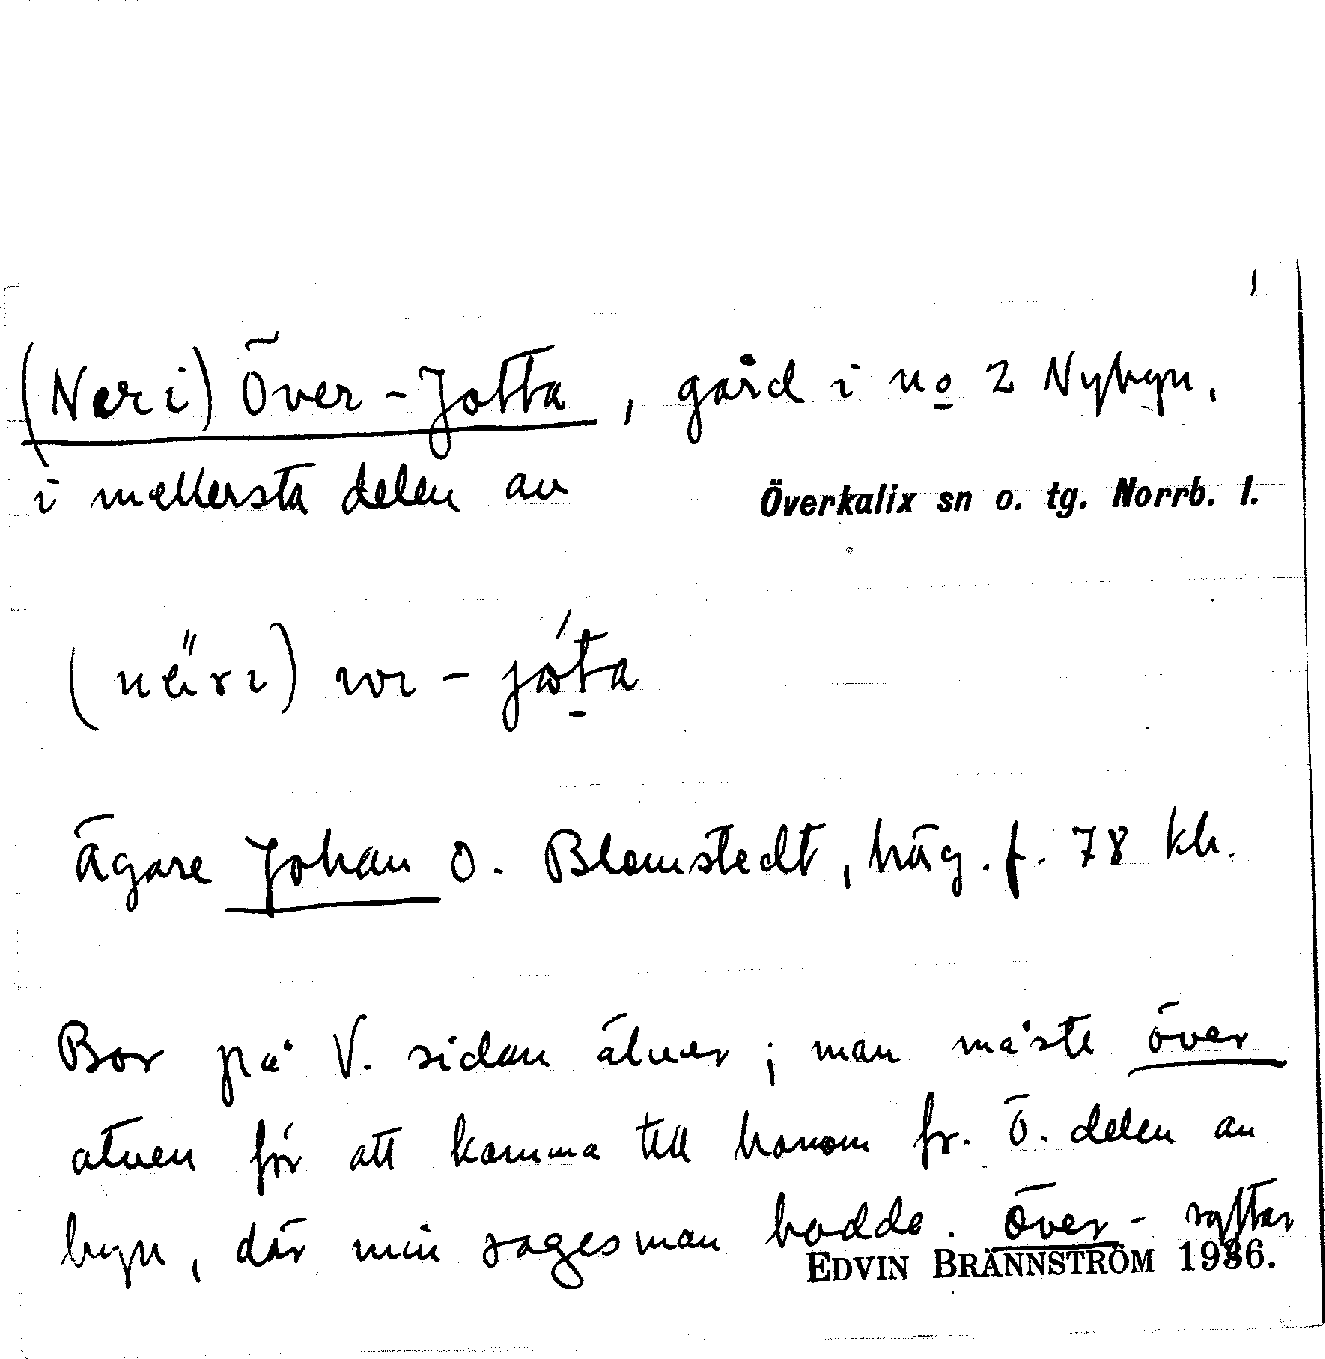 1
(Ner i) Över-Jotta, gård i no 2 Nybyn,
i mellersta delen av
Överkalix sn o. tg. Norrb. l.
Ägare Johan O. Blomstedt, häg. f. 78 kh.
Bor på V. sidan älven; man måste över
älven för att komma till honom fr. Ö. delen av
byn, där min sagesman bodde. Över- syftar
EDVIN BRÄNNSTRÖM 1936.